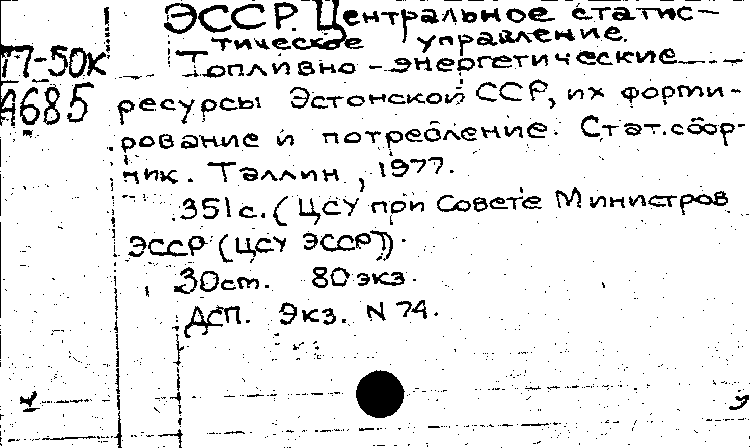 ЭССР. Центральное статис-
тическое управление.
Т7-50к Топливно-энергетические
А685 ресурсы Эстонской ССР, их форми-
рование и потребление. Стат.сбор-
ник. Таллин, 1977.
351с. (ЦСУ при Совете Министров
ЭССР (ЦСУ ЭССР)).
30см. 80экз.
ДСП. Экз. N 74.